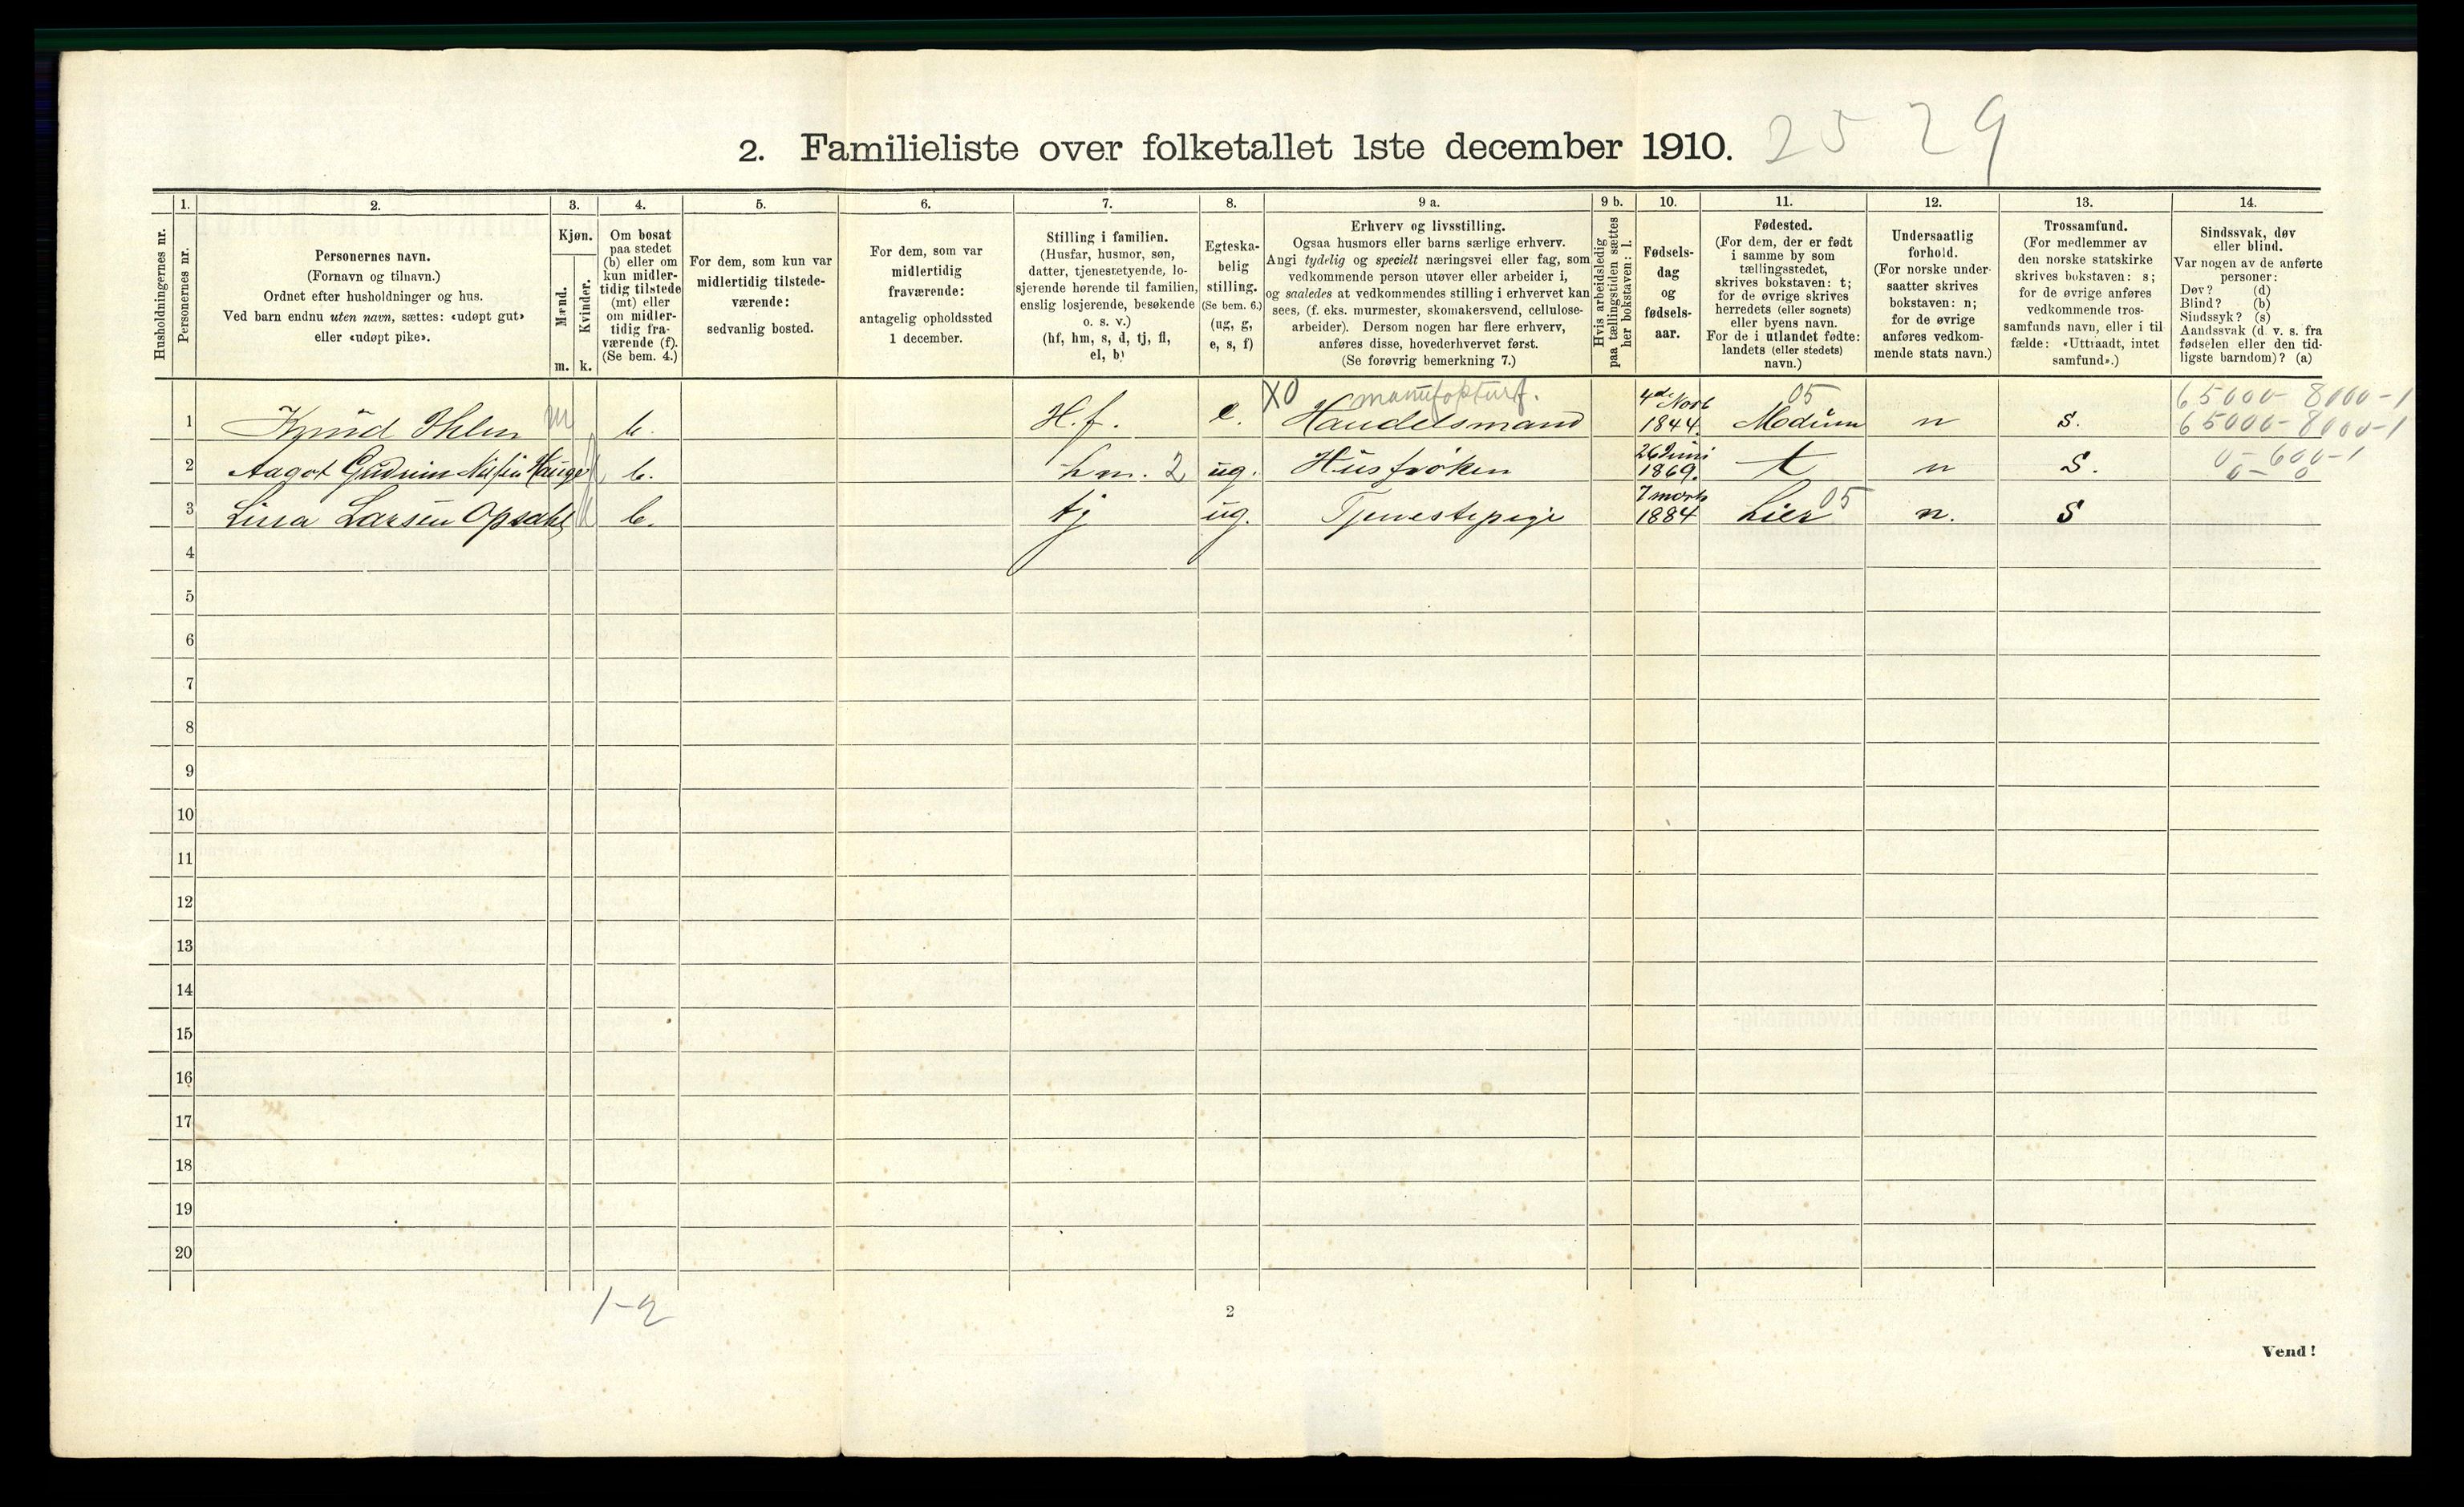 2. Familieliste over folketallet 1ste december 1910. 2529
1. 2. 3. 4. 5. 6. 7. 8. 9 a. 9 b. 10. 11. 12. 13. 14.
Husholdningernes nr.
Personernes nr.
Personernes navn.
(Fornavn og tilnavn.)
Ordnet efter husholdninger og hus.
Ved barn endnu uten navn, sættes: «udøpt gut»
eller «udøpt pike».
Kjøn.
Mænd.
m.
Kvinder.
k.
Om bosat
paa stedet
(b) eller om
kun midler-
tidig tilstede
(mt) eller
om midler-
tidig fra-
værende (f).
(Se bem. 4.)
For dem, som kun var
midlertidig tilstede-
værende:
sedvanlig bosted.
For dem, som var
midlertidig
fraværende:
antagelig opholdssted
1 december.
Stilling i familien.
(Husfar, husmor, søn,
datter, tjenestetyende, lo-
sjerende hørende til familien,
enslig losjerende, besøkende
o. s. v.)
(hf, hm, s, d, tj, fl,
el, b)
Egteska-
belig
stilling.
(Se bem. 6.)
(ug, g,
e, s, f)
Erhverv og livsstilling.
Ogsaa husmors eller barns særlige erhverv.
Angi tydelig og specielt næringsvei eller fag, som
vedkommende person utøver eller arbeider i,
og saaledes at vedkommendes stilling i erhvervet kan
sees, (f. eks. murmester, skomakersvend, cellulose-
arbeider). Dersom nogen har flere erhverv,
anføres disse, hovederhvervet først.
(Se forøvrig bemerkning 7.)
Hvis arbeidsledig
paa tællingstiden sættes
her bokstaven: l.
Fødsels-
dag
og
fødsels-
aar.
Fødested.
(For dem, der er født
i samme by som
tællingsstedet,
skrives bokstaven: t;
for de øvrige skrives
herredets (eller sognets)
eller byens navn.
For de i utlandet fødte:
landets (eller stedets)
navn.)
Undersaatlig
forhold.
(For norske under-
saatter skrives
bokstaven: n;
for de øvrige
anføres vedkom-
mende stats navn.)
Trossamfund.
(For medlemmer av
den norske statskirke
skrives bokstaven: s;
for de øvrige anføres
vedkommende tros-
samfunds navn, eller i til-
fælde: «Uttraadt, intet
samfund».)
Sindssvak, døv
eller blind.
Var nogen av de anførte
personer:
Døv? (d)
Blind? (b)
Sindssyk? (s)
Aandssvak (d. v. s. fra
fødselen eller den tid-
ligste barndom)? (a)
X0 manufakturf. 05 65000- 8000-1
1 Knud Ihlen m b. H.f. e. Handelsmand 4de Novb 1844. Modum n s. 65000-8000-1
2 Aagot Gudrun Hauge b. hm. 2 ug. Husfrøken 26 Juni 1869. t n s. 0-600-1
0-0
3 Lina Larsen Opsahl b. tj ug. Tjenestepige 7 marts 1884 Lier 05 n. s
4
5
6
7
8
9
10
11
12
13
14
15
16
17
18
19
20
1-2
2
Vend!